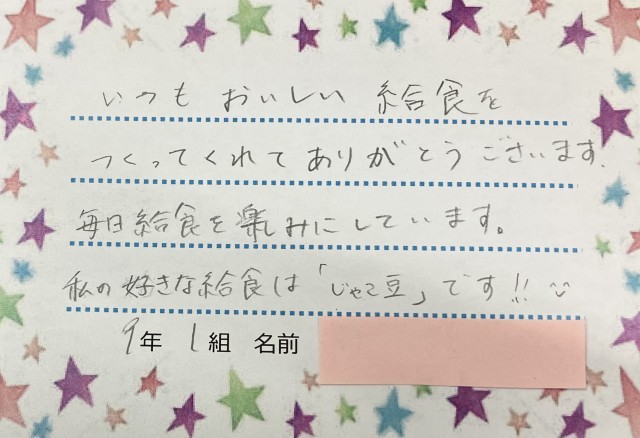 いつも おいしい 給食を
つくってくれてありがとうございます.
毎日給食を楽しみにしています。
私の好きな給食は「じゃこ豆」です!!
9年 1組 名前